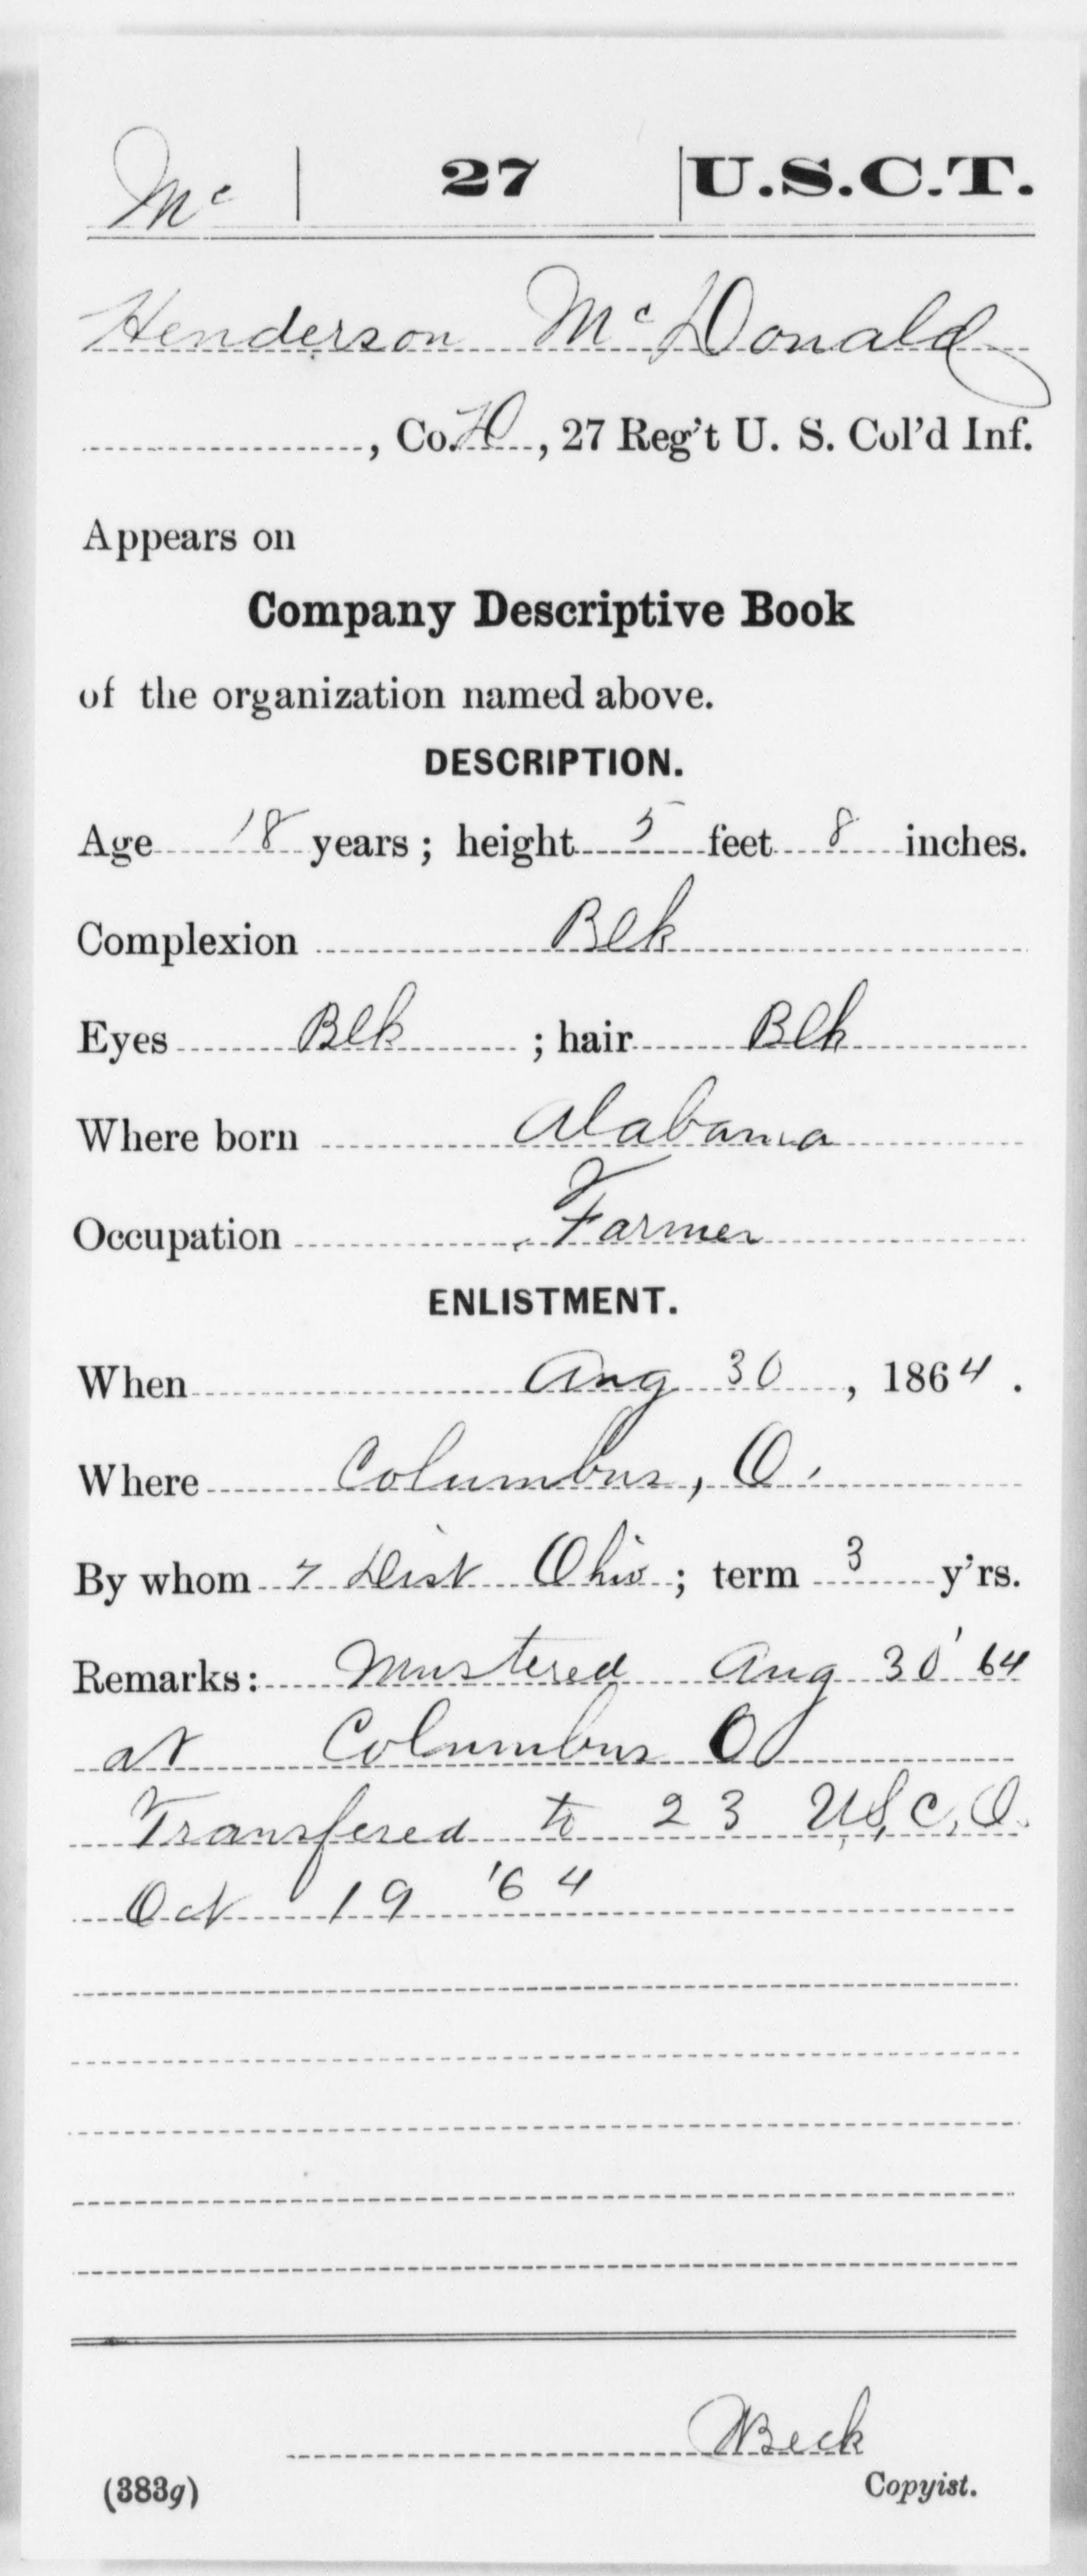 Mc | 27 | U.S.C.T.
Henderson McDonald
, Co. H, 27 Reg't U. S. Col'd Inf.
Appears on
Company Descriptive Book
of the organization named above.
DESCRIPTION.
Age 18 years; height 5 feet 8 inches.
Complexion Blk
Eyes Blk; hair Blk
Where born Alabama
Occupation Farmer
ENLISTMENT.
When Aug 30, 1864.
Where Columbus, O.
By whom 7 Dist Ohio; term 3 y'rs.
Remarks: Mustered Aug 30 '64
at Columbus O
Transfered to 23 U.S.C.I.
Oct 19 '64
Beck
(383g) Copyist.